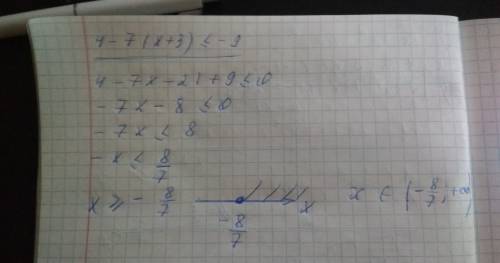 4 - 7(x+3) ≤ -9
4 - 7x - 21 + 9 ≤ 0
- 7x - 8 ≤ 0
- 7x ≤ 8
- x ≤ 8/7
x ≥ - 8/7 x x ∈ [-8/7; +∞)
-8/7